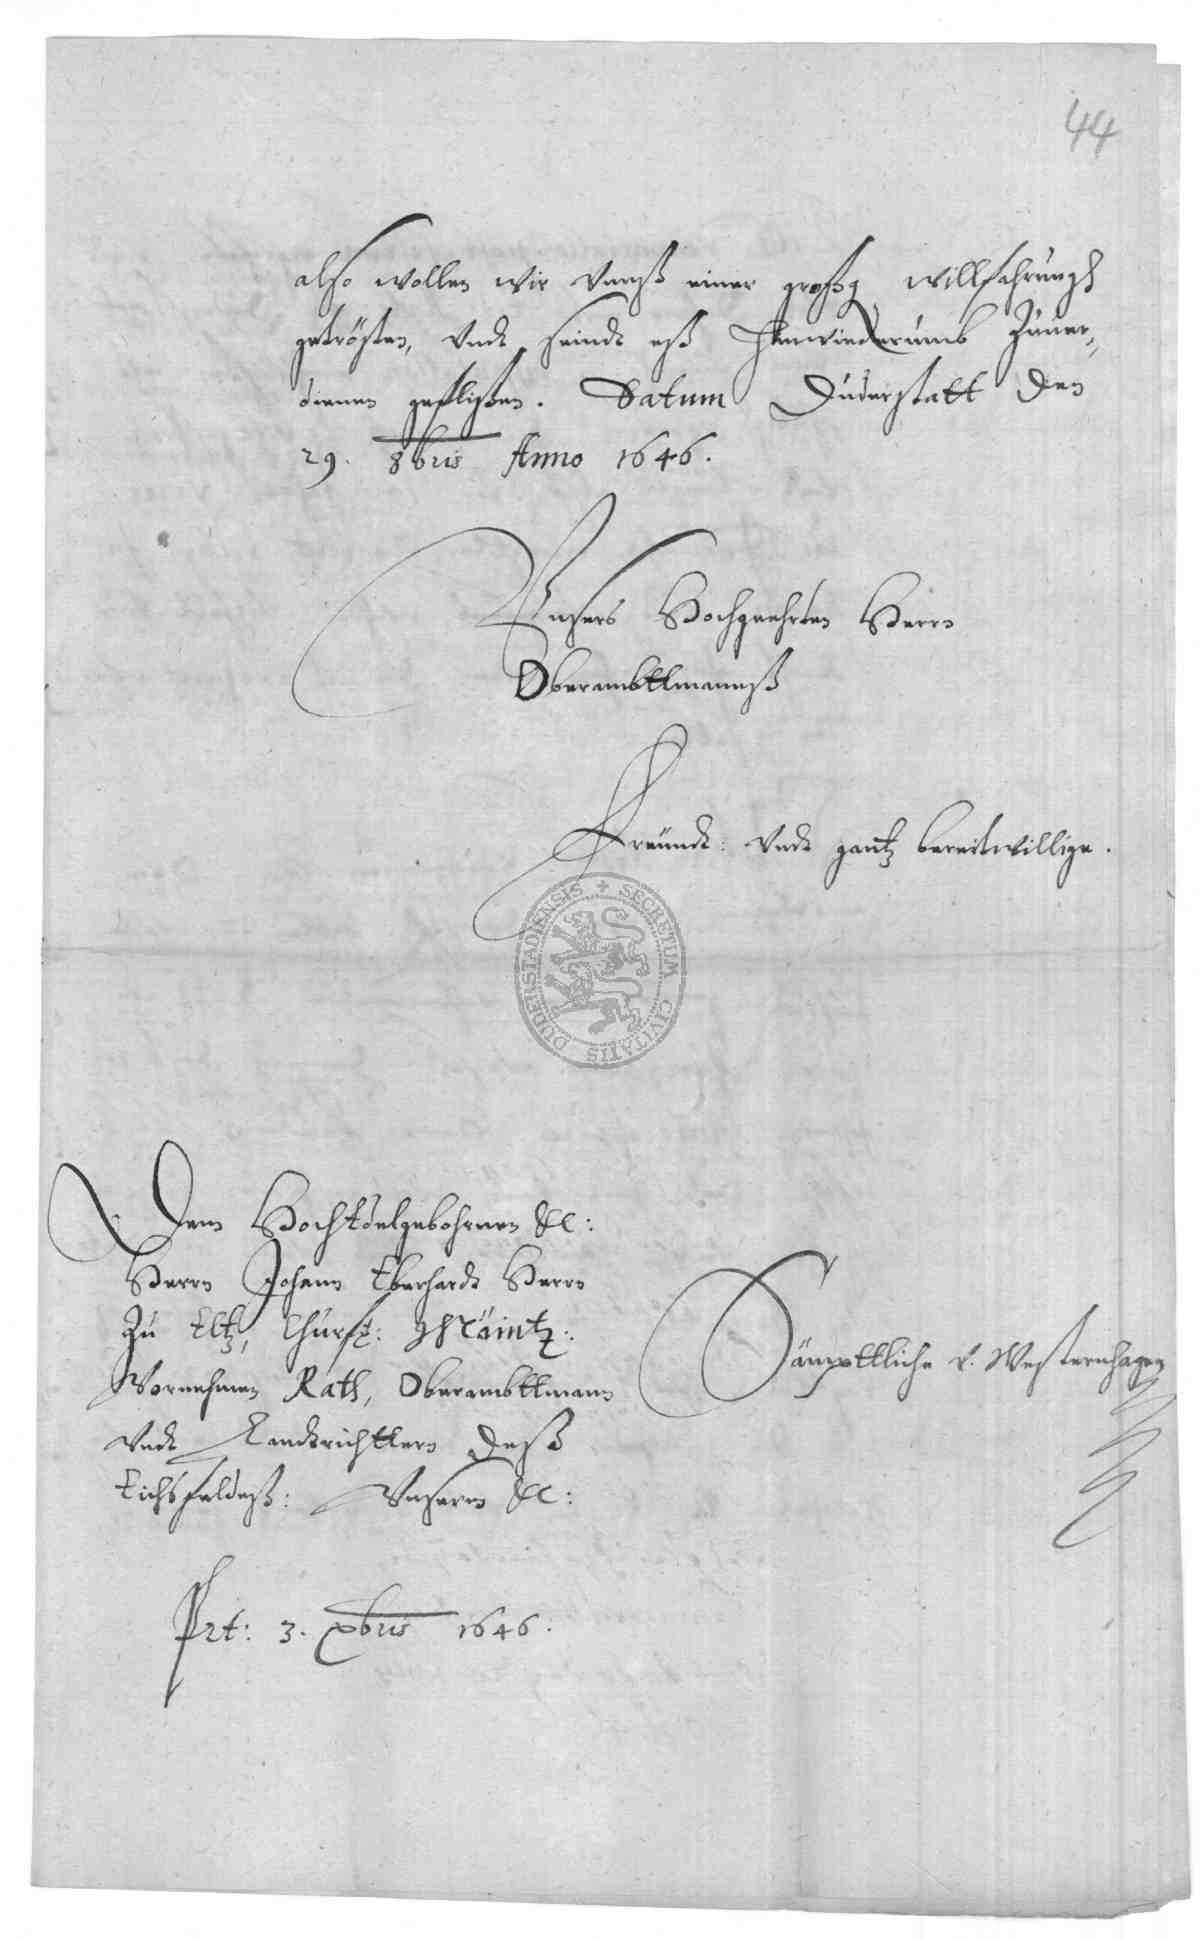 44
also wollen wir vnnß einer großg. willfahrungh
getrösten, vndt seindt eß hinwiederumb zuuer,,
dienen geflißen. Datum Duderstatt den
29. 8bris Anno 1646.
Vnsers Hochgeehrten Herrn
Oberambttmannß
freündt: vndt gantz bereitwillige.
SECRETUM CIVITATIS DUDERSTADIENSIS
Dem HochEdelgebohrnen &c:
Herrn Johann Eberhardt Herrn
zu Eltz, Churf: Mäintz:
Vornehmen Rath, Oberambttmann
vndt Landtrichttern deß
Eichsfeldeß: Vnserm &c:
Sämpttliche v. Westernhagen
Prt: 3. xbris 1646.